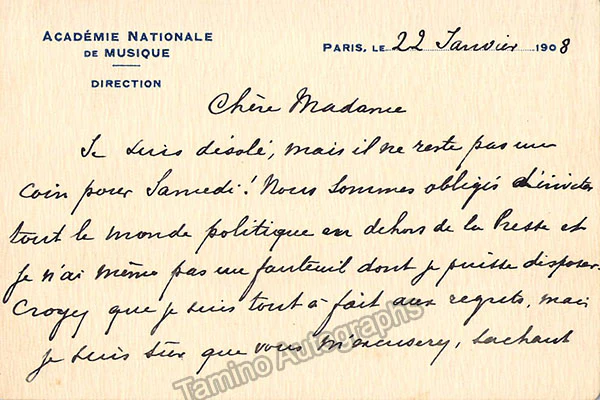 ACADÉMIE NATIONALE
DE MUSIQUE
DIRECTION
PARIS, LE 22 Janvier 1908
Chère Madame
Je suis désolé, mais il ne reste pas un
coin pour Samedi! Nous sommes obligés d'inviter
tout le monde politique en dehors de la Presse et
je n'ai même pas un fauteuil dont je puisse disposer.
Croyez que je suis tout à fait aux regrets, mais
je suis sûr que vous m'excuserez, sachant
Tamino Autographs